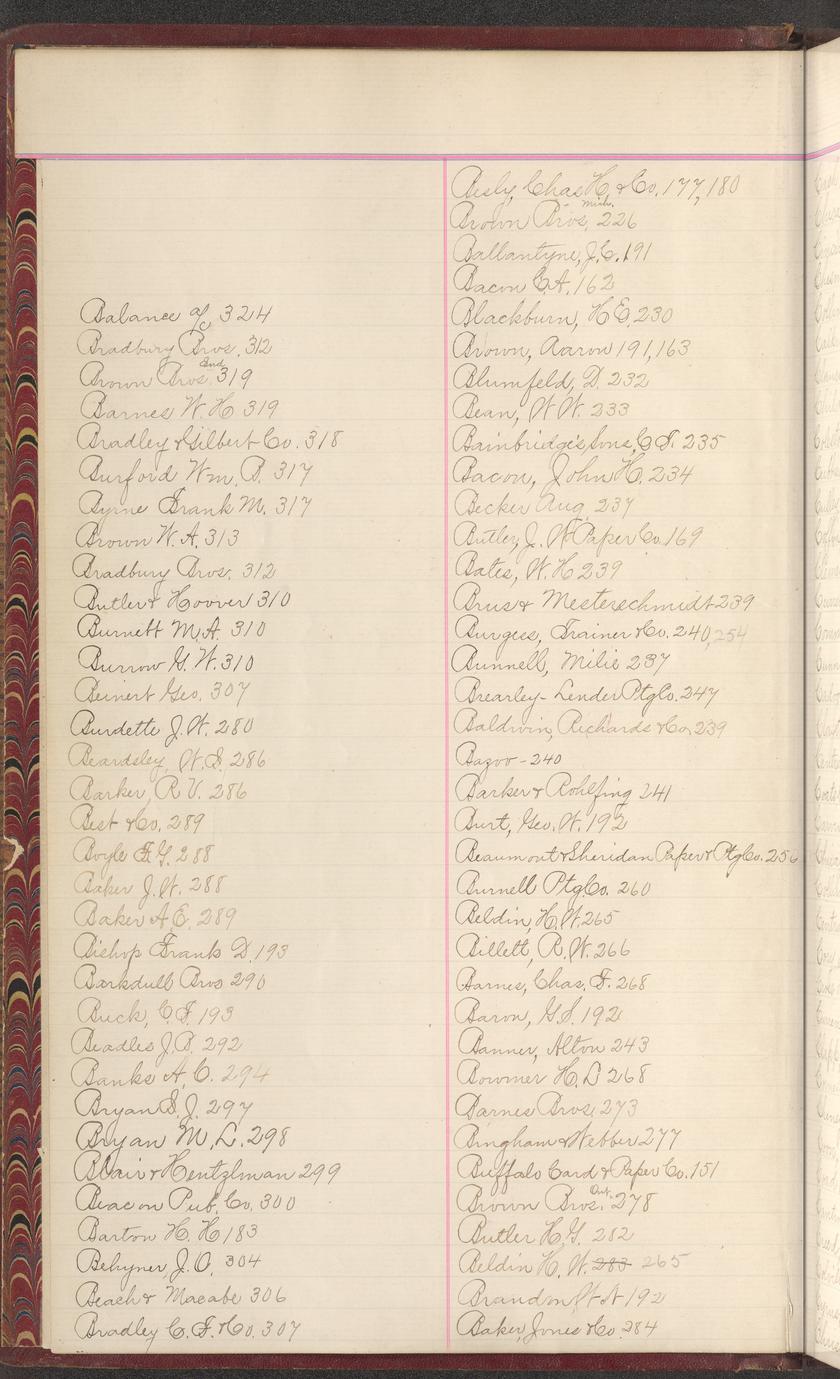 Balance a/c 324
Bradbury Bros. 312
Brown Bros. Ind. 319
Barnes W. H 319
Bradley & Gilbert Co. 318
Burford Wm. B. 317
Byrne Frank M. 317
Brown W. A. 313
Bradbury Bros. 312
Butler & Hoover 310
Burnett M. A. 310
Burrow G. W. 310
Beinert Geo. 307
Burdette J. W. 280
Beardsley, W. S. 286
Barker, R V. 286
Best & Co. 289
Boyle F. G. 288
Baker J. W. 288
Baker A E. 289
Bishop Frank D. 193
Barkdull Bros 290
Buck, C. F. 193
Beadles J. B. 292
Banks A. C. 294
Bryan S. J. 297
Bryan M. L. 298
Blair & Hentzlman 299
Beacon Pub. Co. 300
Barton H. H 183
Behyner, J. O. 304
Beach & Macabe 306
Bradley C. F. & Co. 307
Besly, Chas H. & Co. 177, 180
Brown Bros. Mich. 226
Ballantyne, J. C. 191
Bacon C. A. 162
Blackburn, H E. 230
Brown, Aaron 191, 163
Blumfeld, D. 232
Bean, W W. 233
Bainbridge's Sons, C. T. 235
Bacon, John H. 234
Becker Aug. 237
Butler, J. W Paper Co. 169
Bates, W. H 239
Brus & Mesterschmidt 239
Burgess, Trainer & Co. 240, 254
Bunnell, Milie 237
Brearley-Lender Ptg Co. 247
Baldwin, Richards & Co. 239
Bazoo - 240
Barker & Rohlfing 241
Burt, Geo. W. 192
Beaumont & Sheridan Paper & Ptg Co. 256
Burnell Ptg Co. 260
Beldin, H. W. 265
Billett, R. W. 266
Barnes, Chas. F. 268
Baron, G. S. 192
Banner, Alton 243
Bowmer H. L 268
Barnes Bros. 273
Bingham & Webber 277
Buffalo Card & Paper Co. 151
Brown Bros. Ont. 278
Butler H. G. 282
Beldin H. W. 283 265
Brandon 192
Baker, Jones & Co. 284